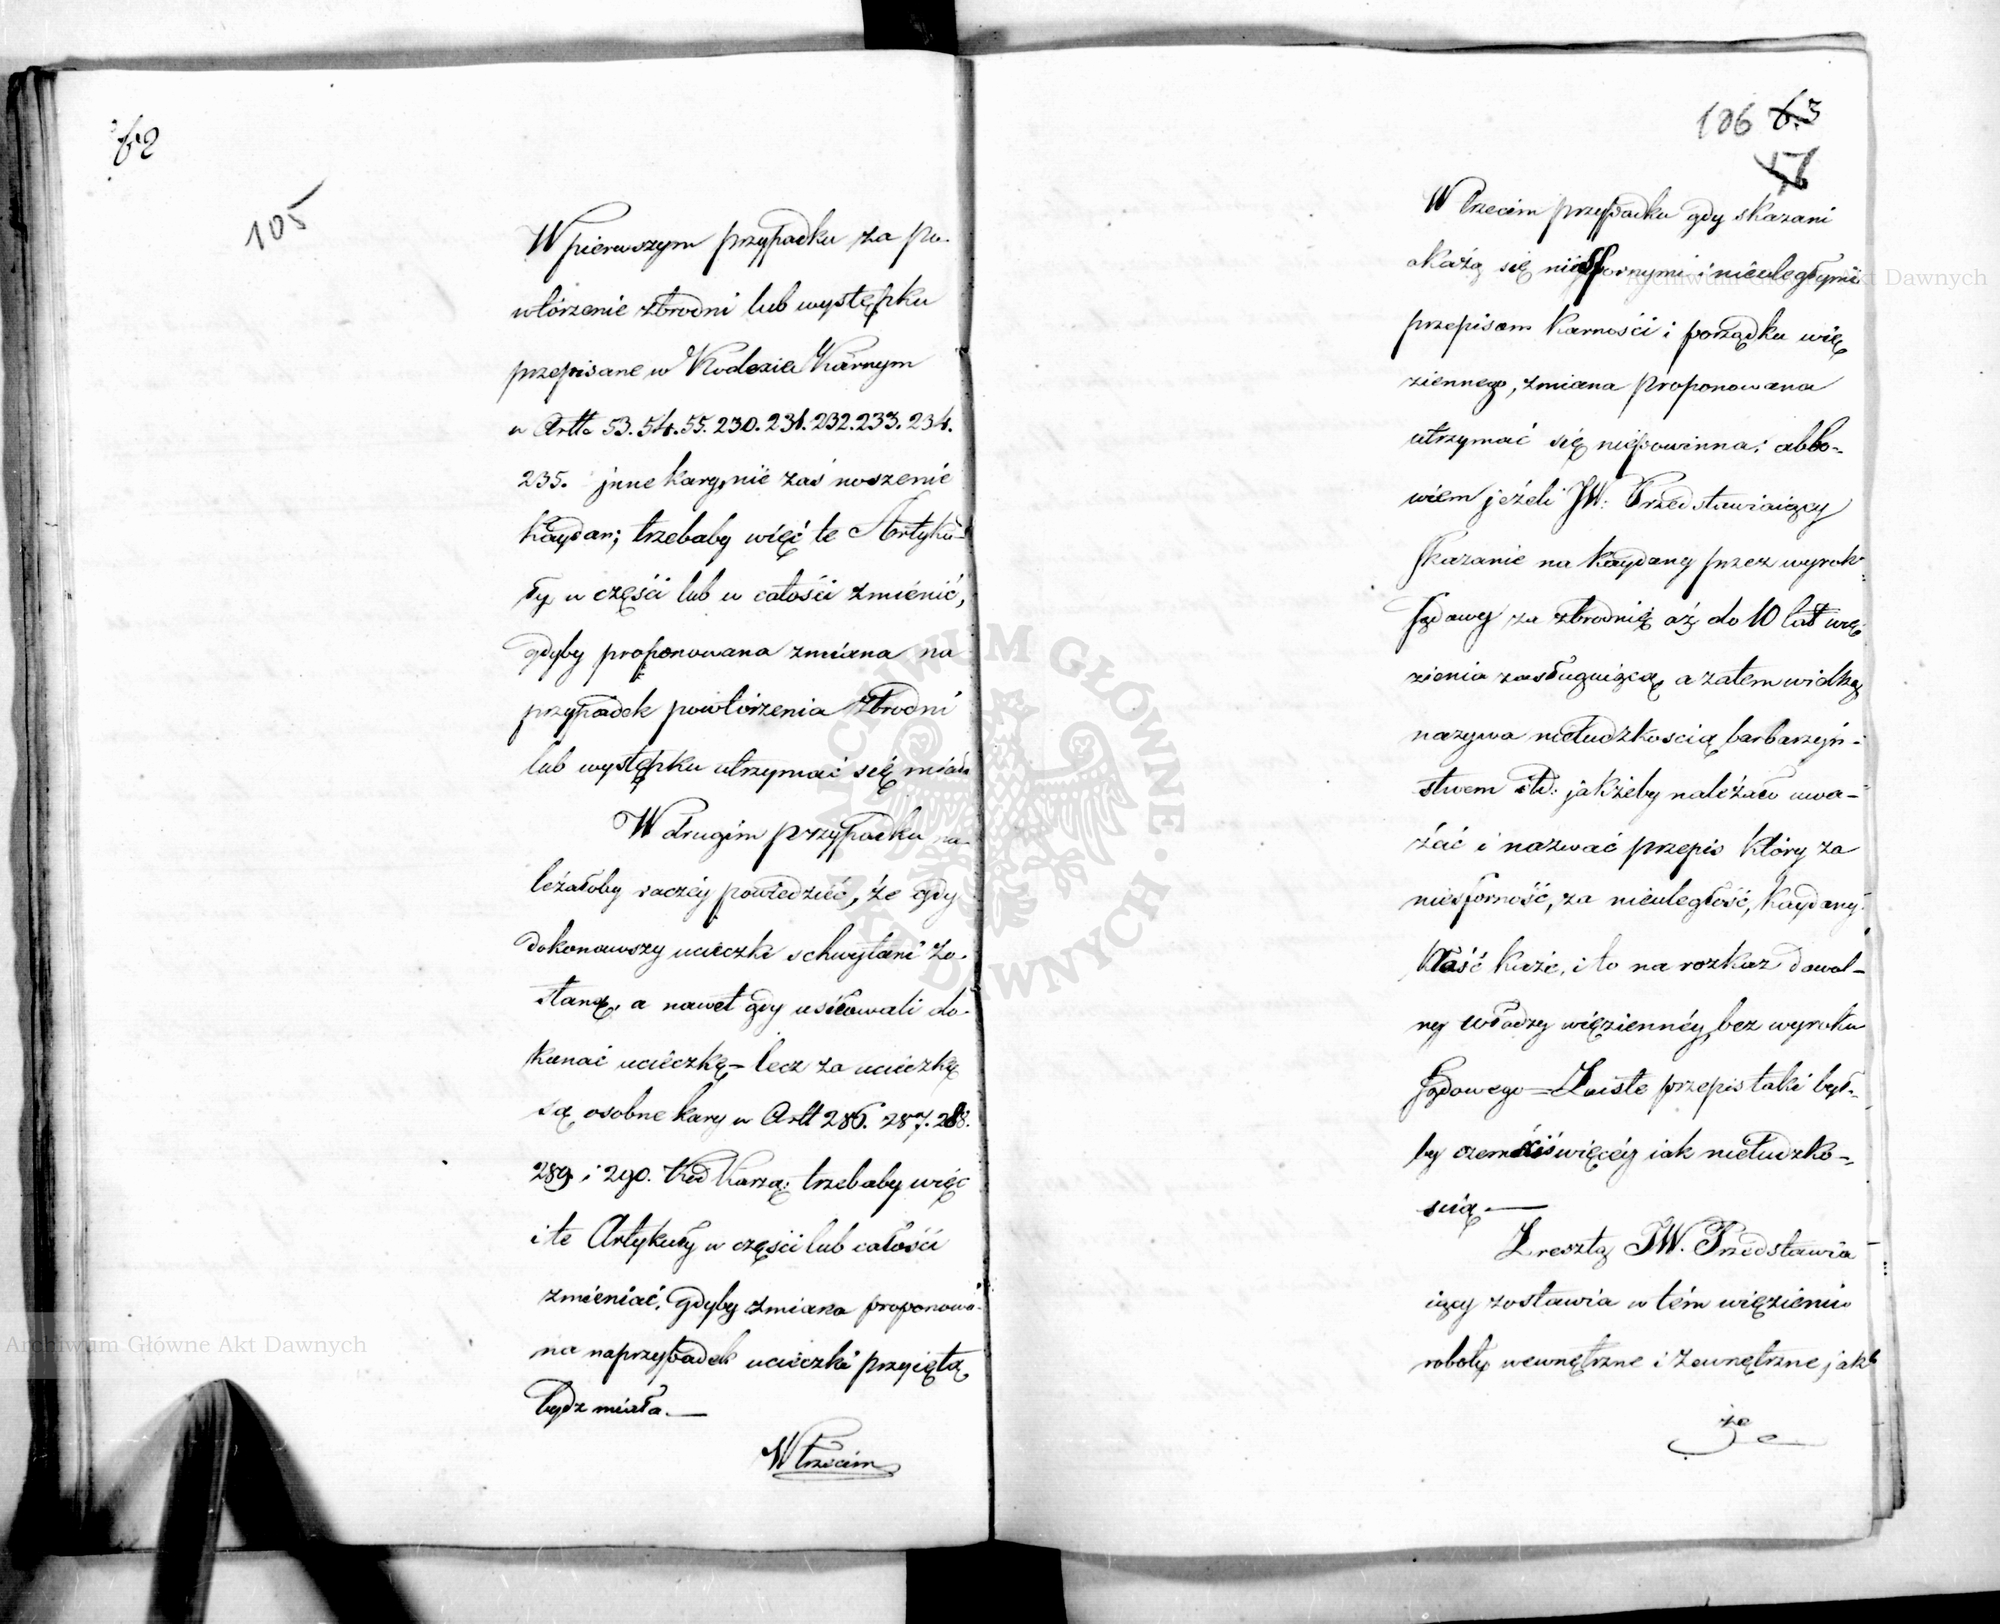 62
105
W pierwszym przypadku za po-
wtórzenie zbrodni lub występku
przepisane w Kodexie Karnym
w Artt. 53. 54. 55. 230. 231. 232. 233. 234.
235. jnne kary, nie zaś noszenie
kaydan; trzebaby więc te Artyku-
ły w części lub w całości zmienić,
gdyby proponowana zmiana na
przypadek powtórzenia zbrodni
lub występku utrzymać się miała
W drugim przypadku na-
leżałoby raczéy powiedzieć, że gdy
dokonawszy ucieczki schwytani zo-
staną, a nawet gdy usiłowali do-
konać ucieczkę – lecz za ucieczkę
są osobne kary w Artt 286. 287. 288.
289 i 290. Kod Karzą: trzebaby więc
i te Artykuły w części lub całości
zmieniać, gdyby zmiana proponowa-
na na przypadek ucieczki przyiętą
bydz miała. —
W trzecim
106 63
W trzecim przypadku gdy skazani
okażą się niesfornymi i nieuległymi
przepisom karności i porządku wię
ziennego, zmiana proponowana
utrzymać się niepowinna; albo-
wiem jeżeli JW. Przedstawiaiący
skazanie na kaydany przez wyrok
sądowy za zbrodnię aż do 10 lat wię
zienia zasługuiącą, a zatem wielką
nazywa nieludzkoscią, barbarzyń-
stwem itd: jakżeby należało uwa-
żać i nazwać przepis który za
niesforność, za nieuległość, kaydany
kłaść każe, i to na rozkaz dowol-
ny władzy więziennéy, bez wyroku
sądowego – Zaiste przepis taki był-
by czemciś więcéy iak nieludzko-
scią. —
Zresztą JW. Przedstawia
iący zostawia w tém więzieniu
roboty wewnętrzne i zewnętrzne jak
że
ARCHIWUM GŁÓWNE AKT DAWNYCH
Archiwum Główne Akt Dawnych
Archiwum Główne Akt Dawnych